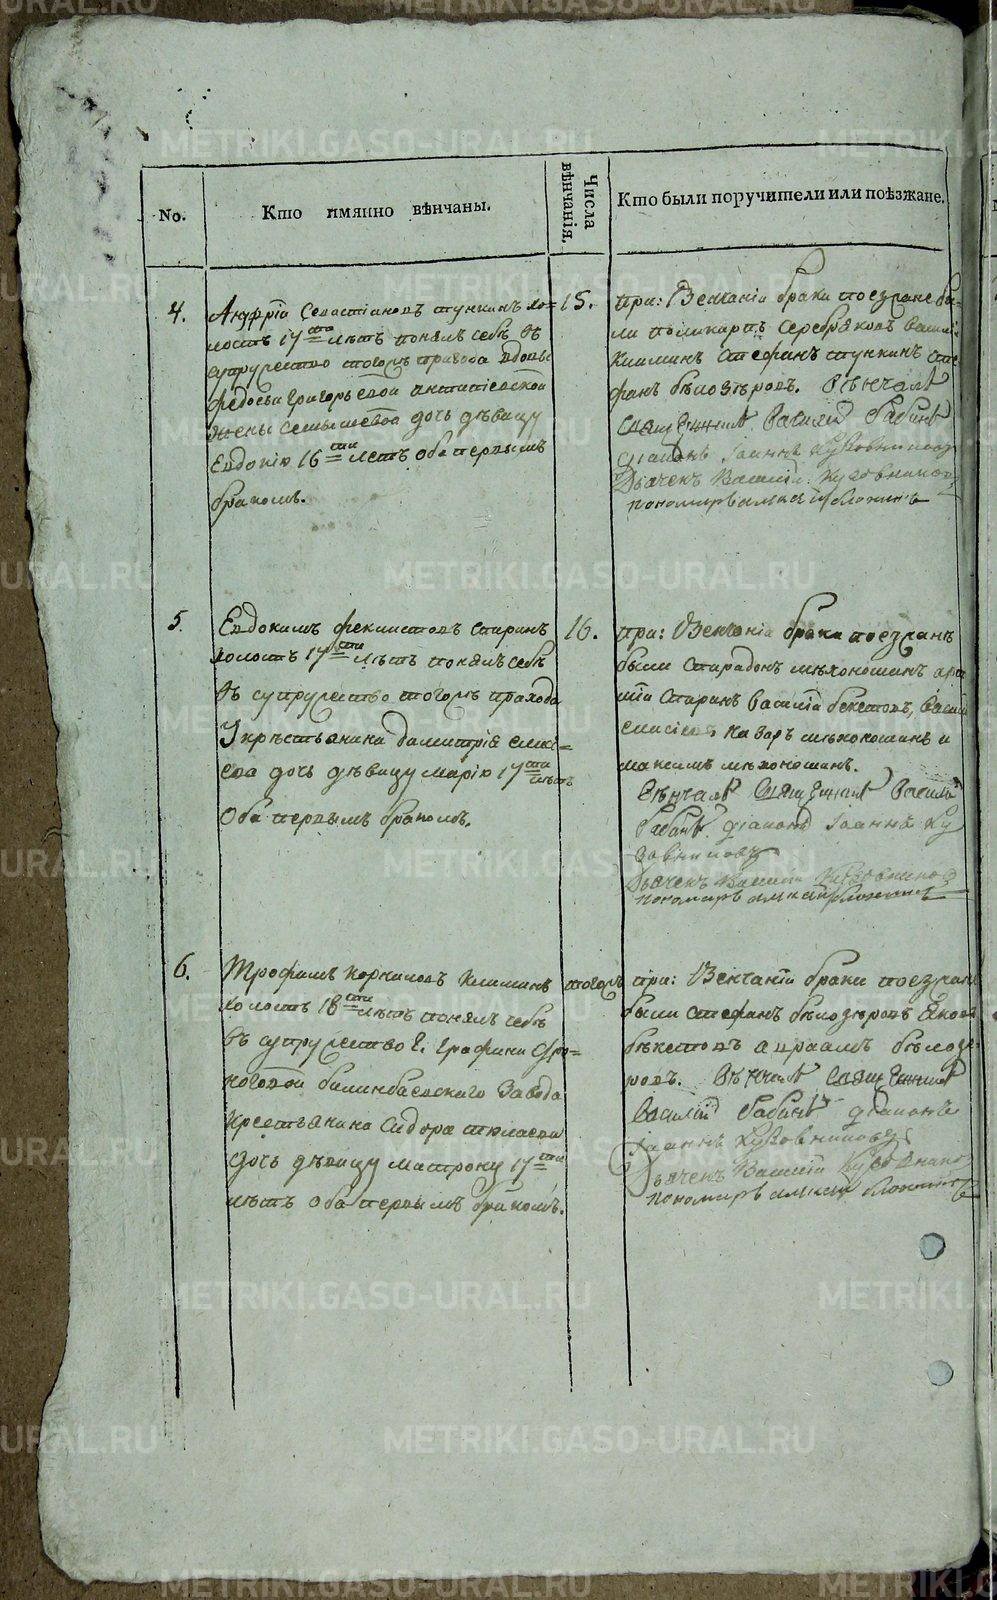 No.
Кто имянно вѣнчаны.
Числа вѣнчанія.
Кто были поручители или поѣзжане.
4.
Андрѣй Севастіановъ тункинъ хо=
лостъ 17ти лѣтъ понялъ себѣ въ
супружество тогожъ прихода вдовы
федосьи григорьевой антипіевской
жены дочь дѣвицу
Евдокію 16ти летъ оба первымъ
бракомъ.
15.
при: Венчаніи брака поезжане бы-
ли поликарпъ серебряковъ васил:
Климинъ стефанъ тункинъ сте
фанъ бѣлозѣровъ. Вѣнчалъ
Священникъ Василій Бабинъ
діаконъ Іоаннъ Кузовниковъ
Дьячекъ Василій Кузовников
пономарь алексѣй блохинъ
5.
Евдокимъ феклистовъ спиринъ
холостъ 17ти лѣтъ понялъ себѣ
въ супружество тогожъ прихода
Укрестьянина димитрія елисѣ=
ева дочь дѣвицу марію 17ти лѣтъ
Оба первымъ бракомъ.
16.
при: Венчаніи брака поезжанѣ
были спиридонъ мѣхоношинъ
спиринъ василій бекетовъ, васил
елисѣевъ назаръ мѣхоношинъ и
максимъ мѣхоношинъ.
Вѣнчалъ Священникъ Василій
Бабинъ діаконъ Іоаннъ Ку
зовниковъ
Дьячекъ Василій Кузовников
пономарь алексѣй блохинъ
6.
Трофимъ корниловъ Климинъ
холостъ 18ти лѣтъ понялъ себѣ
въ супружество Е: Графини Стро=
гоновой билимбаевскаго Завода
крестьянина Сидора
дочь дѣвицу матрону 17ти
лѣтъ Оба первымъ бракомъ.
тогожъ
при: Венчаніи брака поезжанѣ
были стефанъ бѣлозѣровъ яковъ
бѣкетовъ авраамъ бѣлозѣ
ровъ. Вѣнчалъ священникъ
Василій Бабинъ діаконъ
Іоаннъ Кузовниковъ
Дьячекъ Василій Кузовников
пономарь алексѣй блохинъ
METRIKI.GASO-URAL.RU